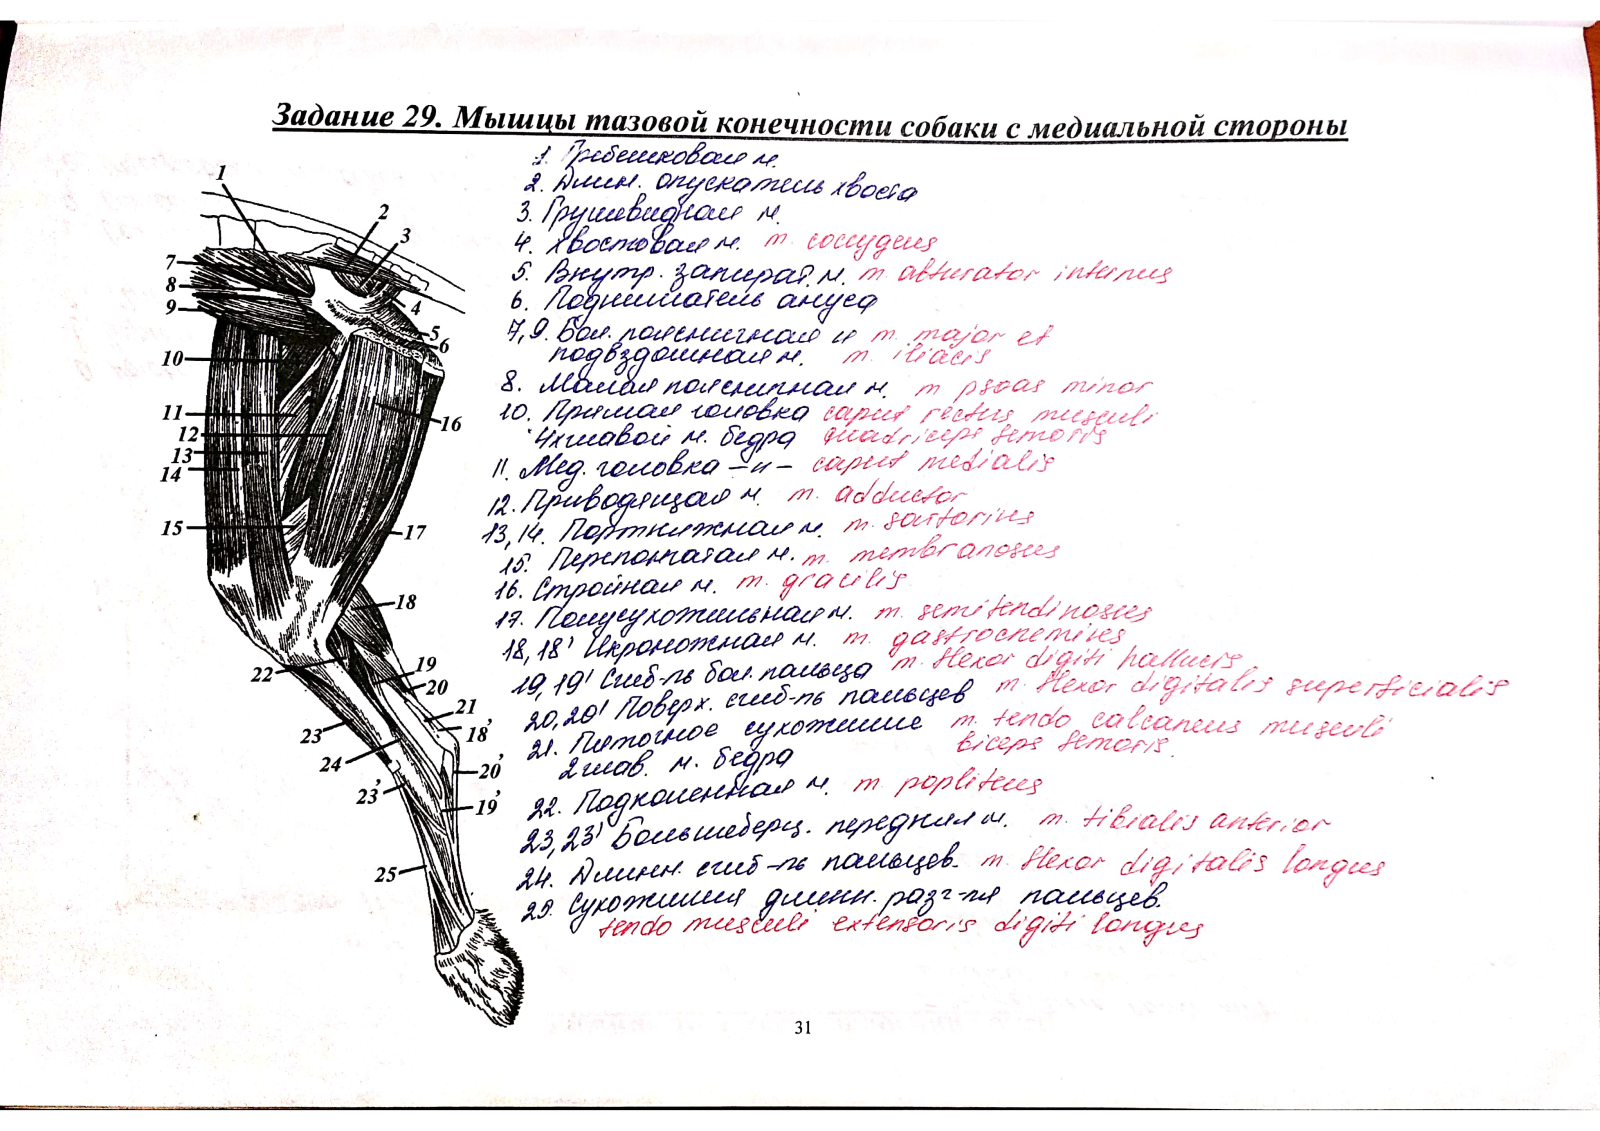 Задание 29. Мышцы тазовой конечности собаки с медиальной стороны
1. Гребешковая м.
2. Длин. опускатель хвоста
3. Грушевидная м.
4. Хвостовая м. m. coccygeus
5. Внутр. запират. м. m. obturator internus
6. Подниматель ануса
7,9. Бол. поясничная и m. major et
подвздошная м. m. iliacis
8. Малая поясничная м. m psoas minor
10. Прямая головка caput rectus musculi
4хглавой м. бедра quadriceps femoris
11. Мед. головка –и– caput medialis
12. Приводящая м. m. adductor
13,14. Портняжная м. m. sartorius
15. Перепончатая м. m. membranosus
16. Стройная м. m. gracilis
17. Полусухожильная м. m. semitendinosus
18,18' Икроножная м. m. gastrocnemius
19,19' Сгиб-ль бол. пальца m. flexor digiti hallucis
20,20' Поверх. сгиб-ль пальцев m. flexor digitalis superficialis
21. Пяточное сухожилие m. tendo calcaneus musculi
2глав. м. бедра biceps femoris.
22. Подколенная м. m. popliteus
23,23' Большеберц. передняя м. m. tibialis anterior
24. Длинн. сгиб-ль пальцев. m. flexor digitalis longus
25. Сухожилия длинн. разг-ля пальцев.
tendo musculi extensoris digiti longus
1
2
3
7
8
9
4
5
6
10
11
12
13
14
16
15
17
18
22
19
20
21
23
18'
24
20'
23'
19'
25
31